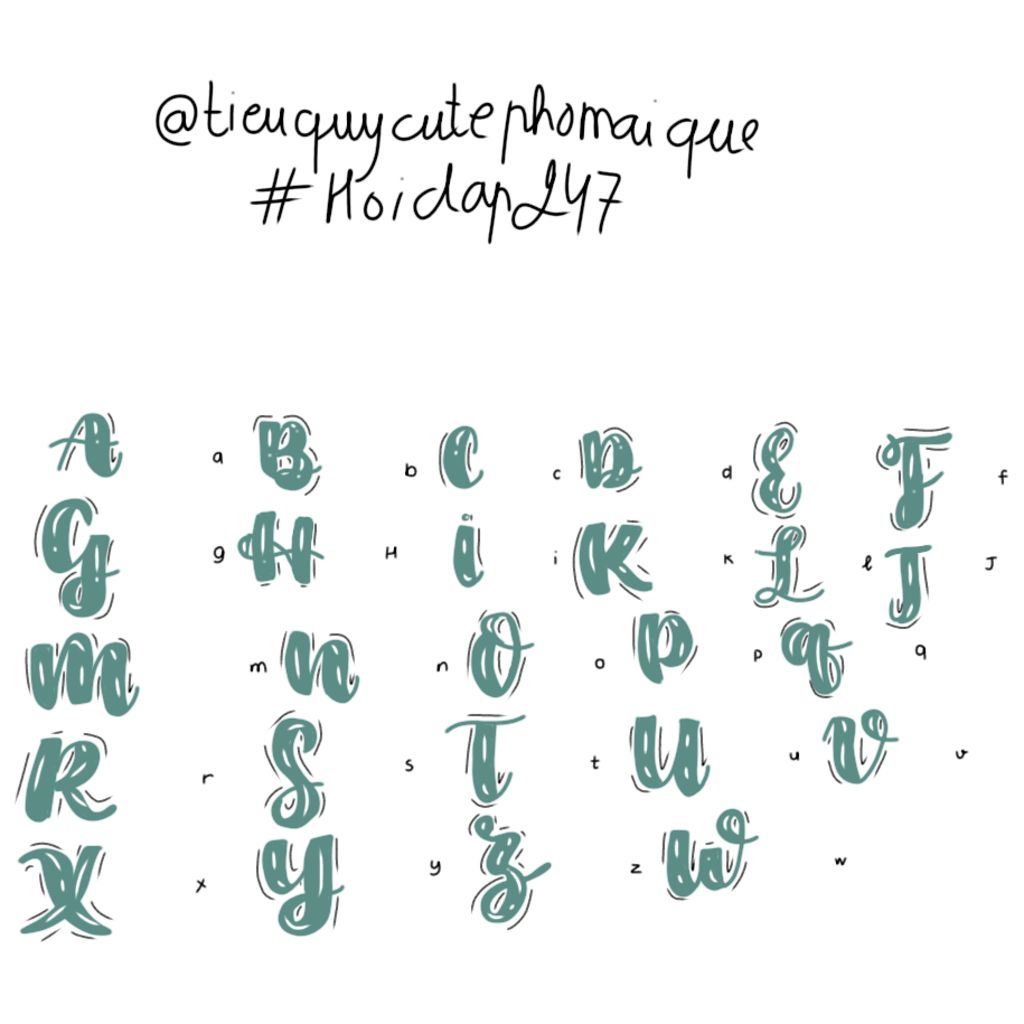 @tieuquycutephomaique
#Hoidap247
A a B b C c D d E F f
G g H H i i K K L l J J
m m n n O o P p q q
R r S s T t u u v v
X x y y z z w w